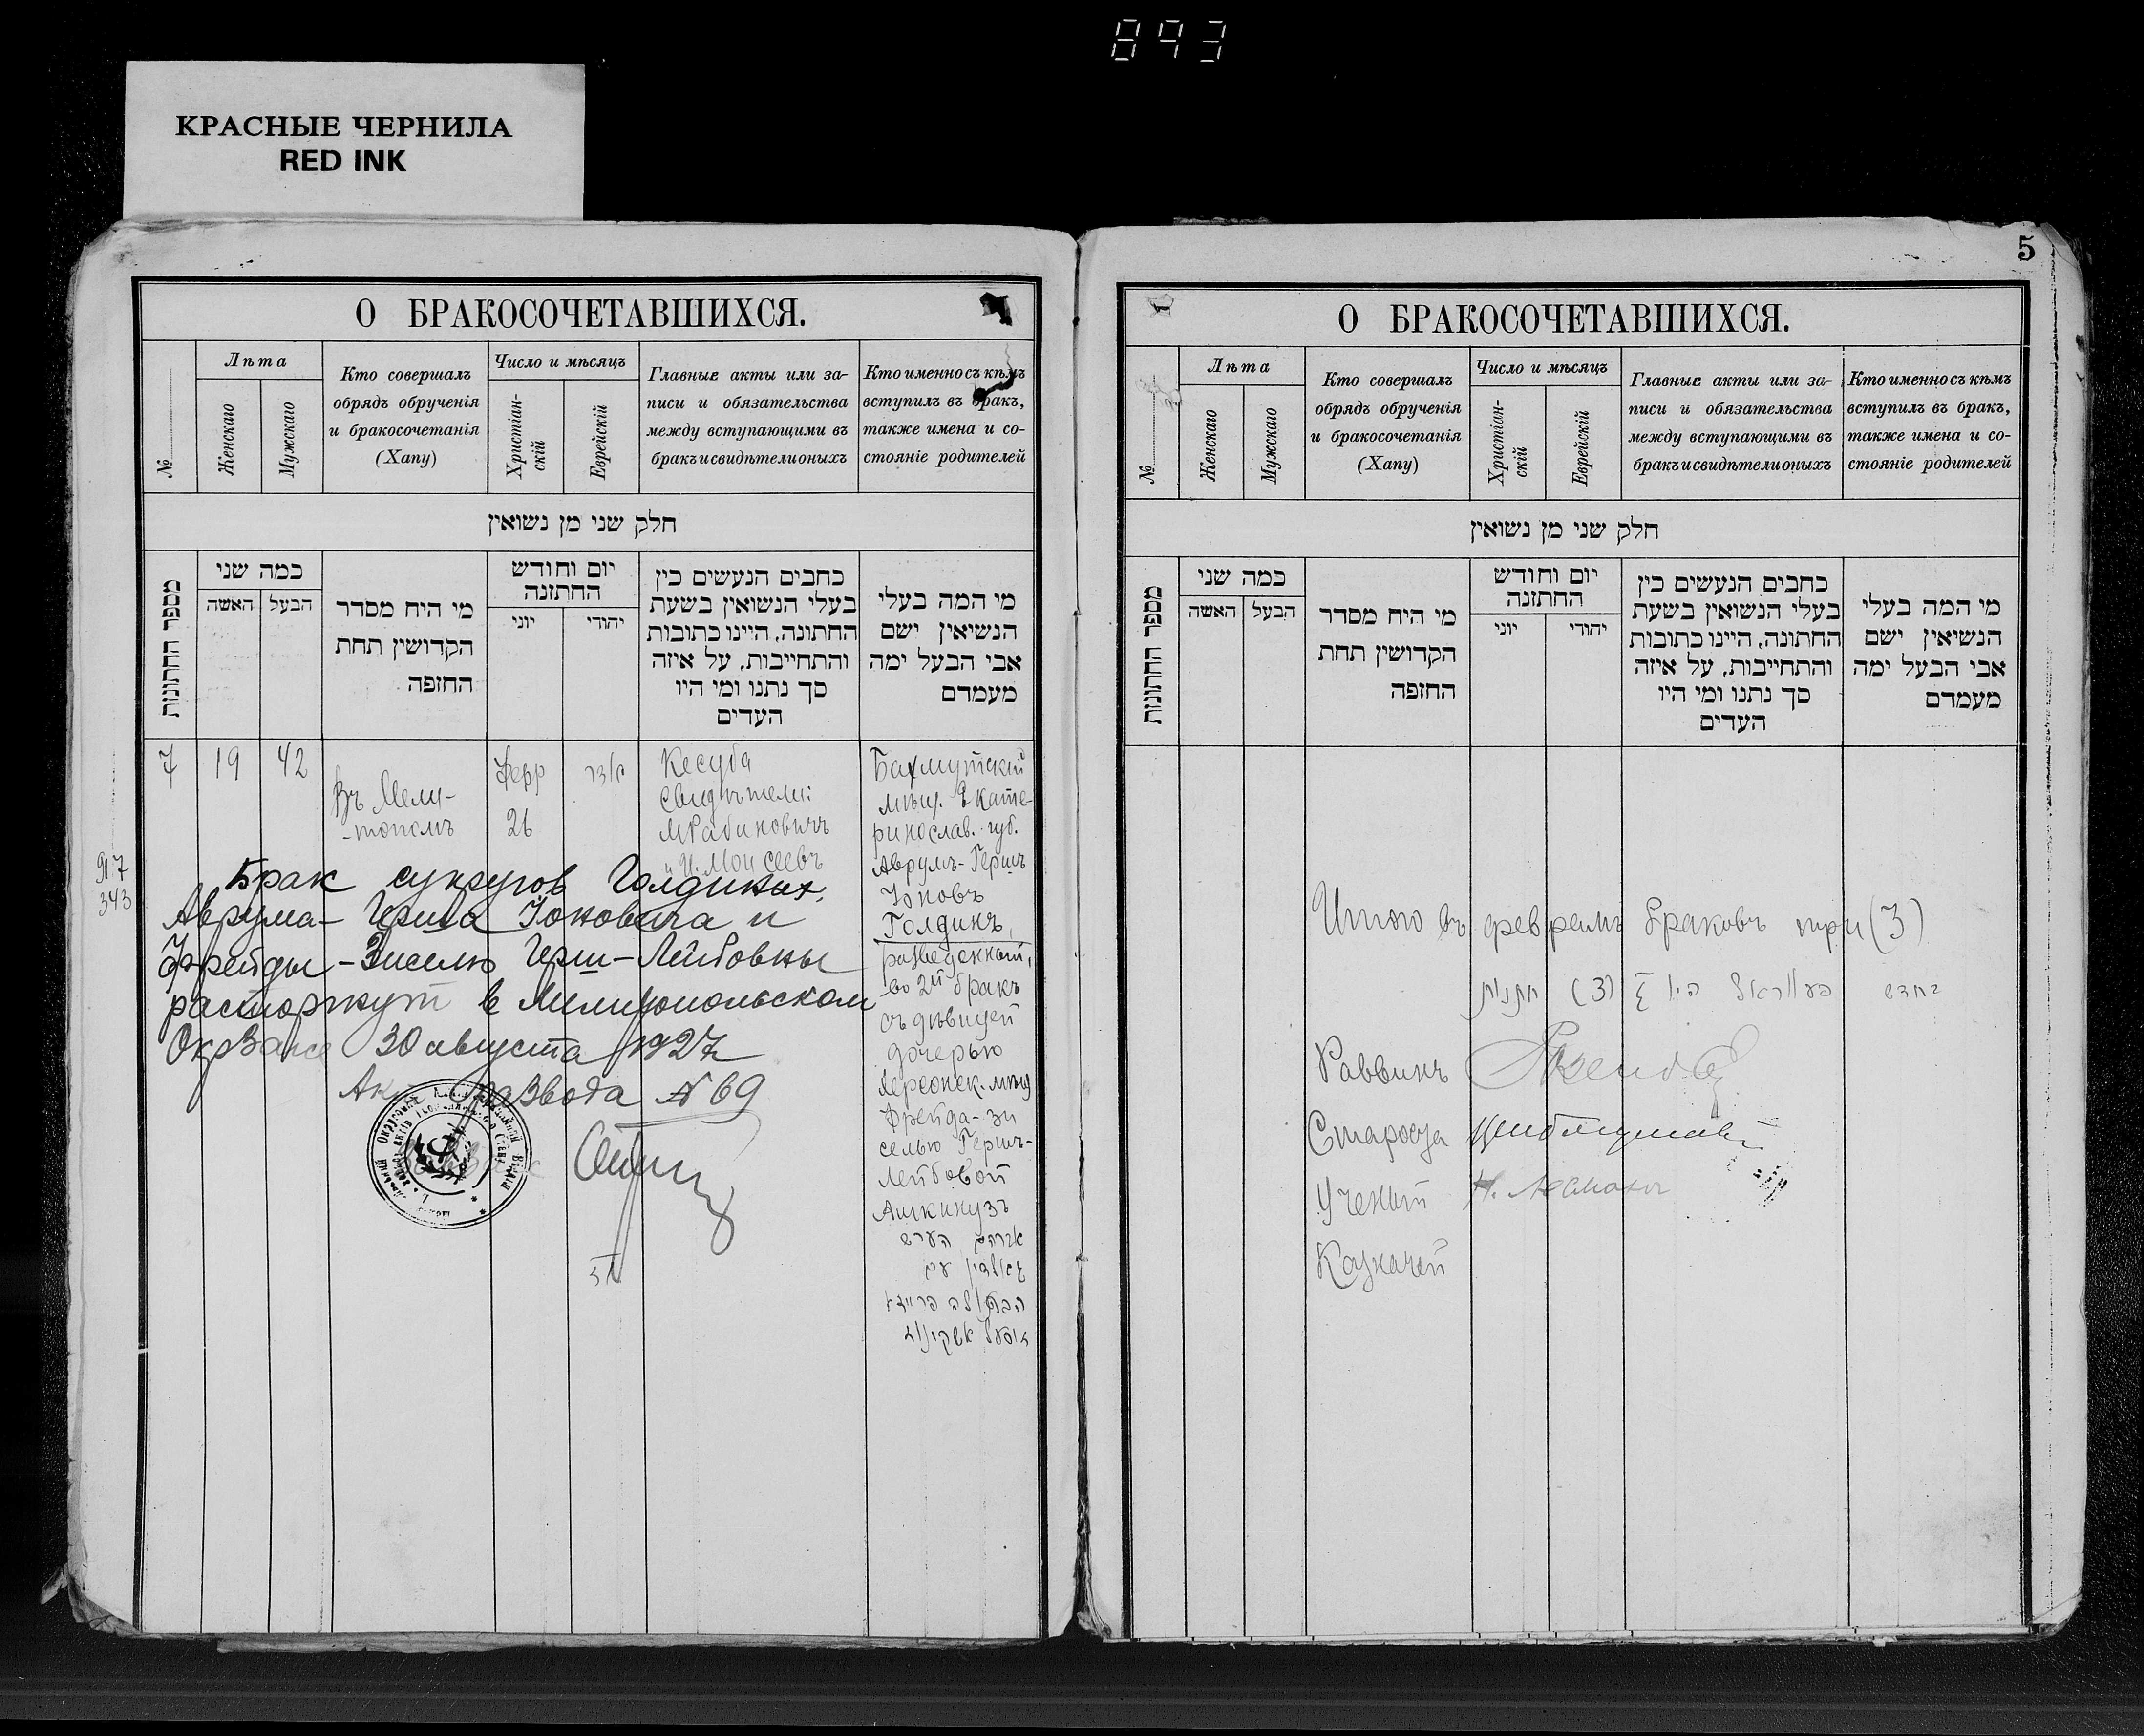 893
КРАСНЫЕ ЧЕРНИЛА
RED INK
О БРАКОСОЧЕТАВШИХСЯ.
№
Лѣта
Женскаго
Мужскаго
Кто совершалъ
обрядъ обрученія
и бракосочетанія
(Хапу)
Число и мѣсяцъ
Христіан-
скій
Еврейскій
Главные акты или за-
писи и обязательства
между вступающими въ
бракъ и свидѣтели оныхъ
Кто именно съ кѣмъ
вступилъ въ бракъ,
также имена и со-
стояніе родителей
חלק שני מן נשואין
מספר החתונות
כמה שני
האשה
הבעל
מי היח מסדר
הקדושין תחת
החופה
יום וחודש
החתונה
יוני
יהודי
כתבים הנעשים בין
בעלי הנשואין בשעת
החתונה, היינו כתובות
והתחייבות, על איזה
סך נתנו ומי היו
העדים
מי המה בעלי
הנשיאין ישם
אבי הבעל ימה
מעמדם
7
19
42
Въ Мели-
-тополѣ
Февр
26
אדר
Кесуба
Свидѣтели:
М Рабиновичъ
и И. Моисеевъ
Бахмутскій
мѣщ. Екате-
ринослав. губ.
Аврумъ-Гершъ
Іоновъ
Голдинъ,
разведенный,
во 2й бракъ
съ дѣвицей
дочерью
Херсонск. мѣщ
Фрейда-Зи
селью Гершъ-
Лейбовой
Ашкинузъ
אברהם הערש
גאלדין עם
הבתולה פריידא
זיסעל אשקינוז
917
343
Брак супругов Голдиных,
Аврума-Герша Іоновича и
Фрейды-Зисель Герш-Лейбовны
расторжут в Мелитопольском
ОкрЗагсе 30 августа 1927
Акт развода № 69
5
О БРАКОСОЧЕТАВШИХСЯ.
№
Лѣта
Женскаго
Мужскаго
Кто совершалъ
обрядъ обрученія
и бракосочетанія
(Хапу)
Число и мѣсяцъ
Христіан-
скій
Еврейскій
Главные акты или за-
писи и обязательства
между вступающими въ
бракъ и свидѣтели оныхъ
Кто именно съ кѣмъ
вступилъ въ бракъ,
также имена и со-
стояніе родителей
חלק שני מן נשואין
מספר החתונות
כמה שני
האשה
הבעל
מי היח מסדר
הקדושין תחת
החופה
יום וחודש
החתונה
יוני
יהודי
כתבים הנעשים בין
בעלי הנשואין בשעת
החתונה, היינו כתובות
והתחייבות, על איזה
סך נתנו ומי היו
העדים
מי המה בעלי
הנשיאין ישם
אבי הבעל ימה
מעמדם
Итого въ февралѣ браковъ три (3)
בחדש פעווראל היו ג (3) חתנות
Раввинъ
Староста
Ученый
Казначей